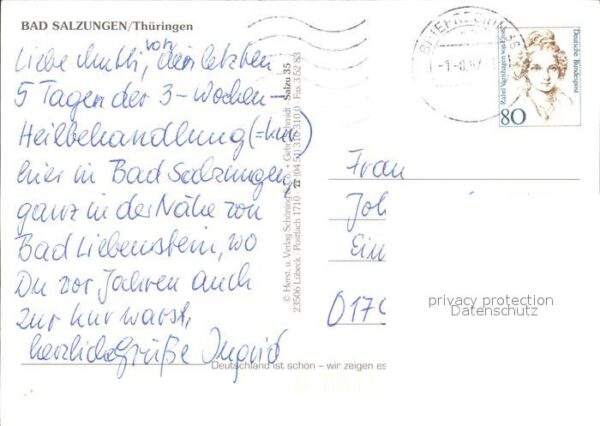 BAD SALZUNGEN/Thüringen
Liebe Mutti, von
den letzten
5 Tagen der 3-Wochen-
Heilbehandlung (=Kur)
hier in Bad Salzungen,
ganz in der Nähe von
Bad Liebenstein, wo
Du vor Jahren auch
zur Kur warst,
herzliche Grüße Ingrid
© Herst. u. Verlag Schöning & Co. + Gebr. Schmidt Salzu 35
23506 Lübeck · Postfach 1710 · ☎ (04 51) 310 310 Fax 3 52 83
Deutschland ist schön – wir zeigen es
35
Deutsche Bundespost
80
Frau
Joh
Ein
0179
privacy protection
Datenschutz